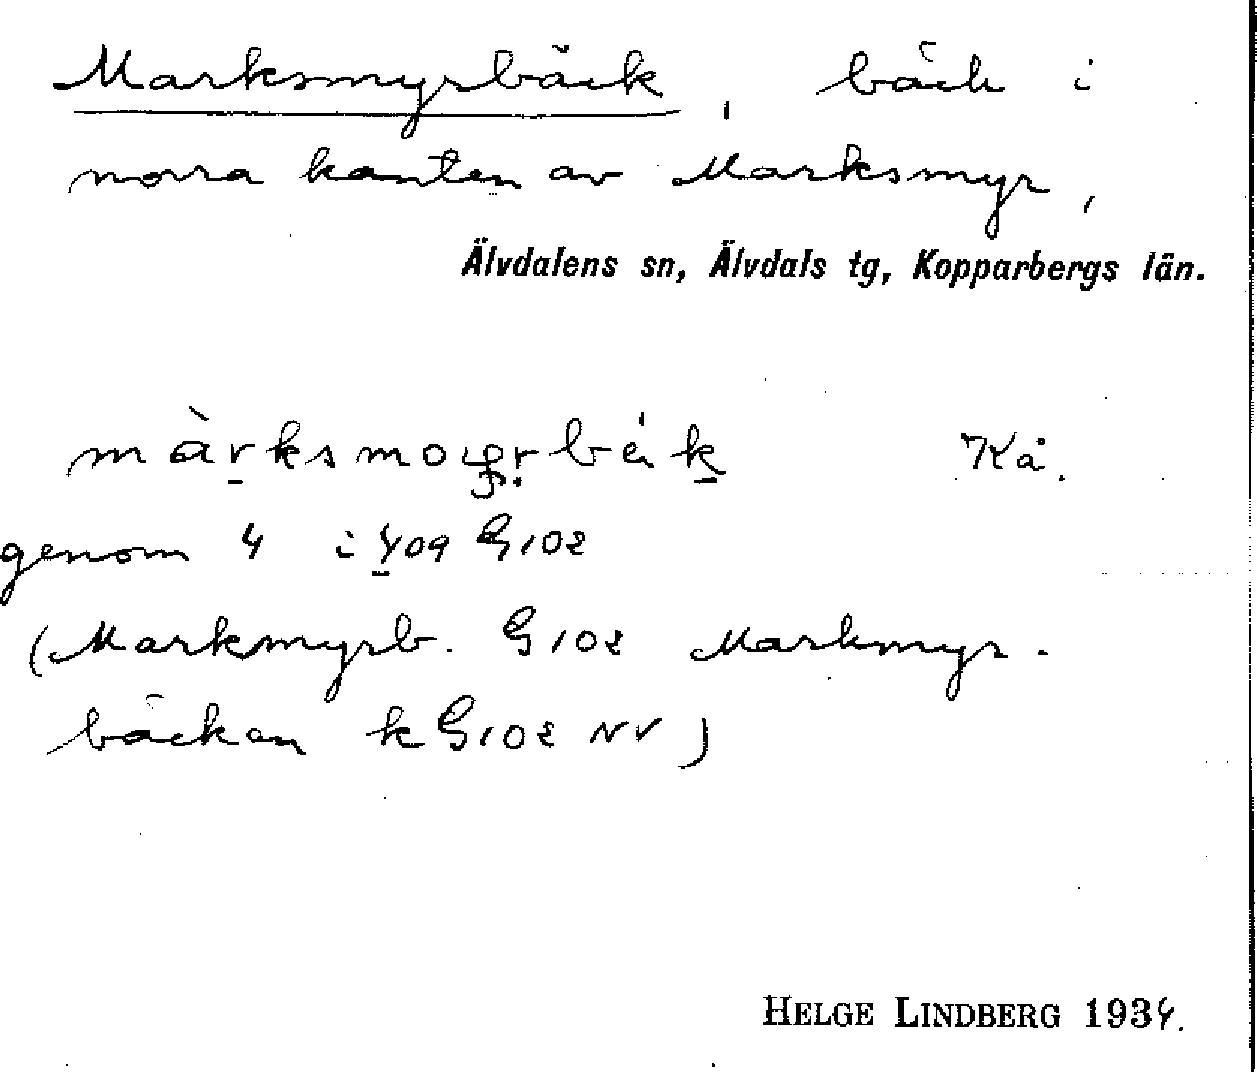 Marksmyrbäck, bäck i
norra kanten av Marksmyr,
Älvdalens sn, Älvdals tg, Kopparbergs län.
Kå.
genom 4 i 409 G102
(Markmyrb. G102 Markmyr-
bäckan k G102 NV)
HELGE LINDBERG 1934.